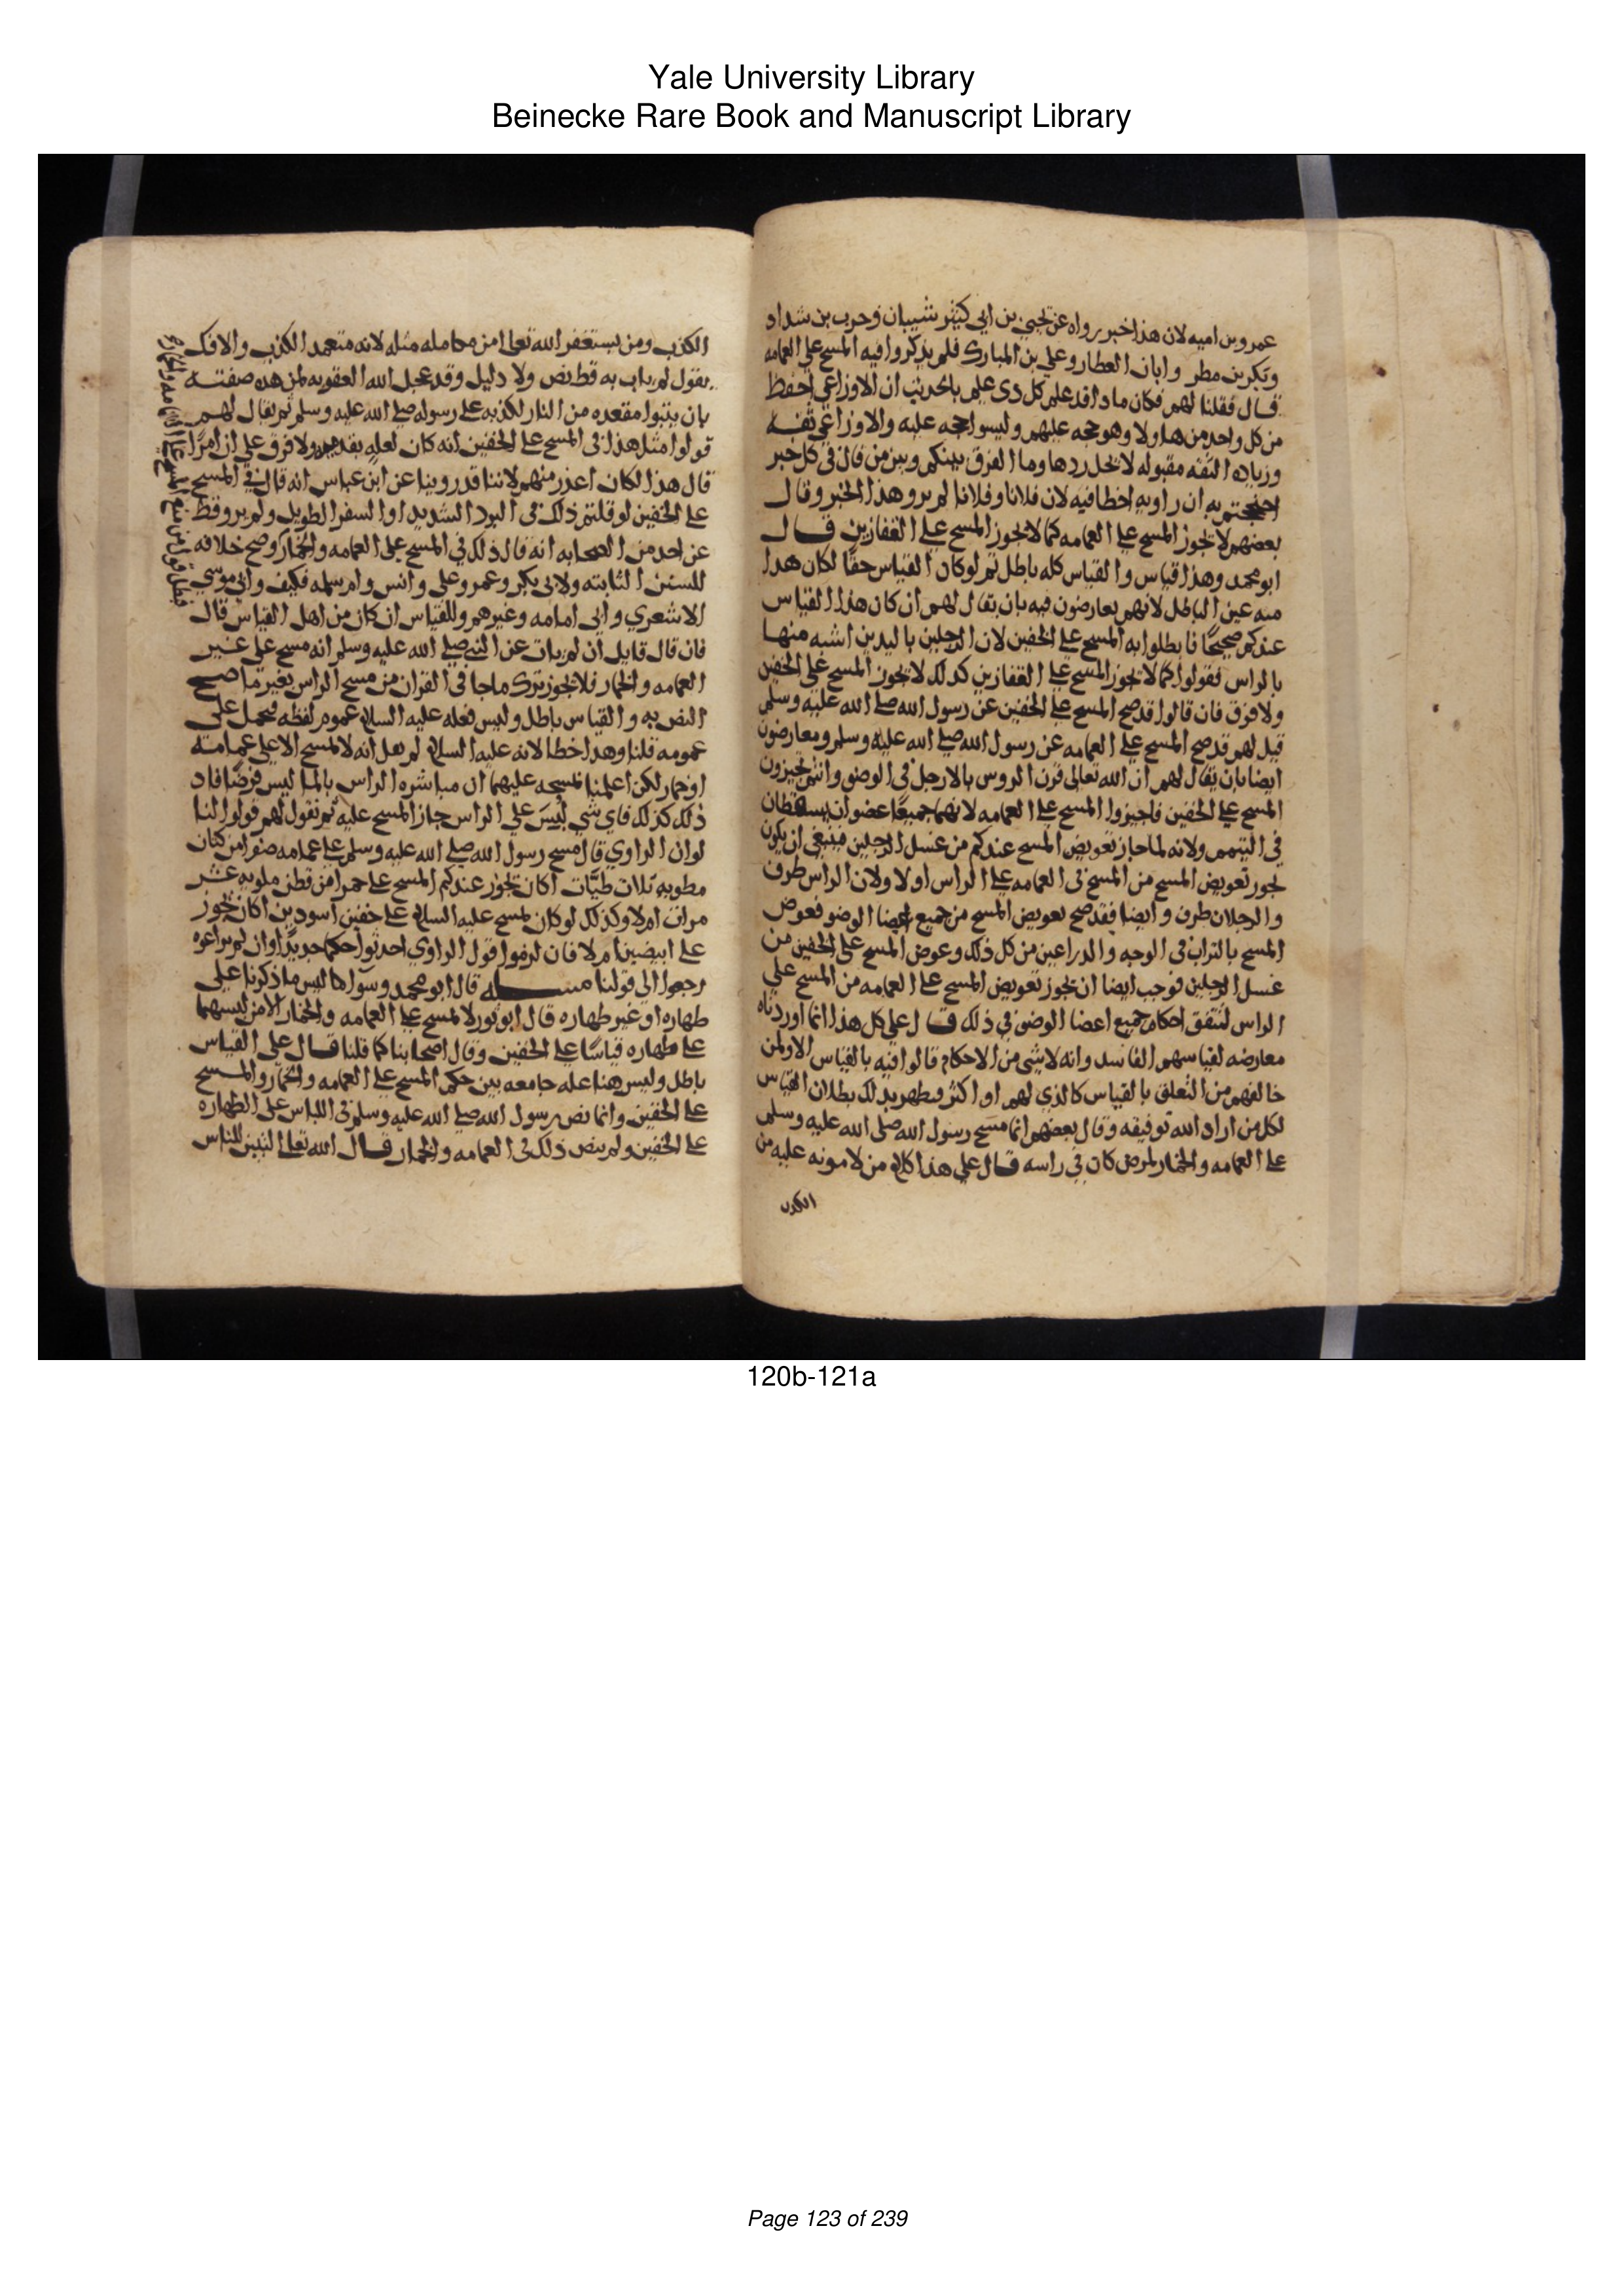 Yale University Library
Beinecke Rare Book and Manuscript Library
عمرو بن اميه لان هذا خبر رواه عن يحيى بن ابي كثير شيبان وحرب بن شداد
وبكر بن مطر وابان العطار وعلي بن المبارك فلم يذكروا فيه المسح على العمامه
قال فقلنا لهم فكان ماذا قد علم كل ذي علم بالحديث ان الاوزاعي احفظ
من كل واحد من هاولا وهو حجه عليهم وليسوا حجه عليه والاوزاعي ثقه
وزياده الثقه مقبوله لا يحل ردها وما الفرق بينكم وبين من قال في كل خبر
احتججتم به ان راويه اخطا فيه لان فلانا وفلانا لم يرو هذا الخبر وقال
بعضهم لا يجوز المسح على العمامه كما لا يجوز المسح على القفازين قال
ابو محمد وهذا قياس والقياس كله باطل ثم لو كان القياس حقا لكان هذا
منه عين الباطل لانهم يعارضون فيه بان يقال لهم ان كان هذا القياس
عندكم صحيحا فابطلوا به المسح على الخفين لان الرجلين باليدين اشبه منها
بالراس فقولوا كما لا يجوز المسح على القفازين كذلك لا يجوز المسح على الخفين
ولا فرق فان قالوا قد صح المسح على الخفين عن رسول الله صلى الله عليه وسلم
قيل لهم قد صح المسح على العمامه عن رسول الله صلى الله عليه وسلم ومعارضون
ايضا بان يقال لهم ان الله تعالى قرن الروس بالارجل في الوضو وانتم تجيزون
المسح على الخفين فاجيزوا المسح على العمامه لانهما جميعا عضوان يسقطان
في التيمم ولانه لما جاز تعويض المسح عندكم من غسل الرجلين فينبغي ان يكون
يجوز تعويض المسح من المسح في العمامه على الراس اولا ولان الراس طرف
والرجلان طرف وايضا فقد صح تعويض المسح من جميع اعضا الوضو فعوض
المسح بالتراب في الوجه والذراعين من كل ذلك وعوض المسح على الخفين من
غسل الرجلين فوجب ايضا ان يجوز تعويض المسح على العمامه من المسح على
الراس لتتفق احكام جميع اعضا الوضو في ذلك قال علي كل هذا انما اوردناه
معارضه لقياسهم الفاسد وانه لا شي من الاحكام قالوا فيه بالقياس الا ولمن
خالفهم من التعلق بالقياس كالذي لهم او اكثر فيظهر بذلك بطلان القياس
لكل من اراد الله توفيقه وقال بعضهم انما مسح رسول الله صلى الله عليه وسلم
على العمامه والخمار لمرض كان في راسه قال علي هذا كلام من لا مونه عليه من
الكذب
الكذب ومن يستغفر الله تعالى من معامله مثله لانه متعمد الكذب والافك
يقول لم يات به قط نص ولا دليل وقد عجل الله العقوبه لمن هذه صفته
بان يتبوا مقعده من النار لكذبه على رسوله صلى الله عليه وسلم ثم يقال لهم
قولوا مثل هذا في المسح على الخفين انه كان لعله بقدميه ولا فرق على ان امرا
قال هذا لكان اعذر منهم لاننا قد روينا عن ابن عباس انه قال في المسح
على الخفين لو قلتم ذلك في البرد الشديد او السفر الطويل ولم يرو قط
عن احد من الصحابه انه قال ذلك في المسح على العمامه والخمار وصح خلافه
للسنن الثابته ولابي بكر وعمر وعلي وانس وام سلمه فكيف وابي موسي
الاشعري وابي امامه وغيرهم وللقياس ان كان من اهل القياس قال
فان قال قايل ان لم يات عن النبي صلى الله عليه وسلم انه مسح على غير
العمامه والخمار فلا يجوز ترك ما جا في القران من مسح الراس بغير ما صح
النص به والقياس باطل وليس فعله عليه السلام عموم لفظه فيحمل على
عمومه قلنا وهذا خطا لانه عليه السلام لم يقل انه لا يمسح الا على عمامه
او خمار لكن اعلمنا بمسحه عليهما ان مباشره الراس بالما ليس فرضا فاذ
ذلك كذلك فاي شي لبس على الراس جاز المسح عليه ثم نقول لهم قولوا لنا
لو ان الراوي قال مسح رسول الله صلى الله عليه وسلم على عمامه صفرا من كتان
مطويه ثلاث طيات اكان يجوز عندكم المسح على حمرا من قطن ملويه عشر
مرات ام لا وكذلك لو كان مسح عليه السلام على خفين اسودين اكان يجوز
على ابيضين ام لا فان لزموا قول الراوي احدثوا حكما جديدا وان لم يراعوه
رجعوا الى قولنا مسله قال ابو محمد وسوا ما ليس ما ذكرنا على
طهاره او غير طهاره قال ابو ثور لا يمسح على العمامه والخمار الا من لبسهما
على طهاره قياسا على الخفين وقال اصحابنا كما قلنا قال علي القياس
باطل وليس هنا عله جامعه بين حكم المسح على العمامه والخمار والمسح
على الخفين وانما نص رسول الله صلى الله عليه وسلم في اللباس على الطهاره
على الخفين ولم ينص ذلك في العمامه والخمار قال الله تعالى لتبين للناس
120b-121a
Page 123 of 239